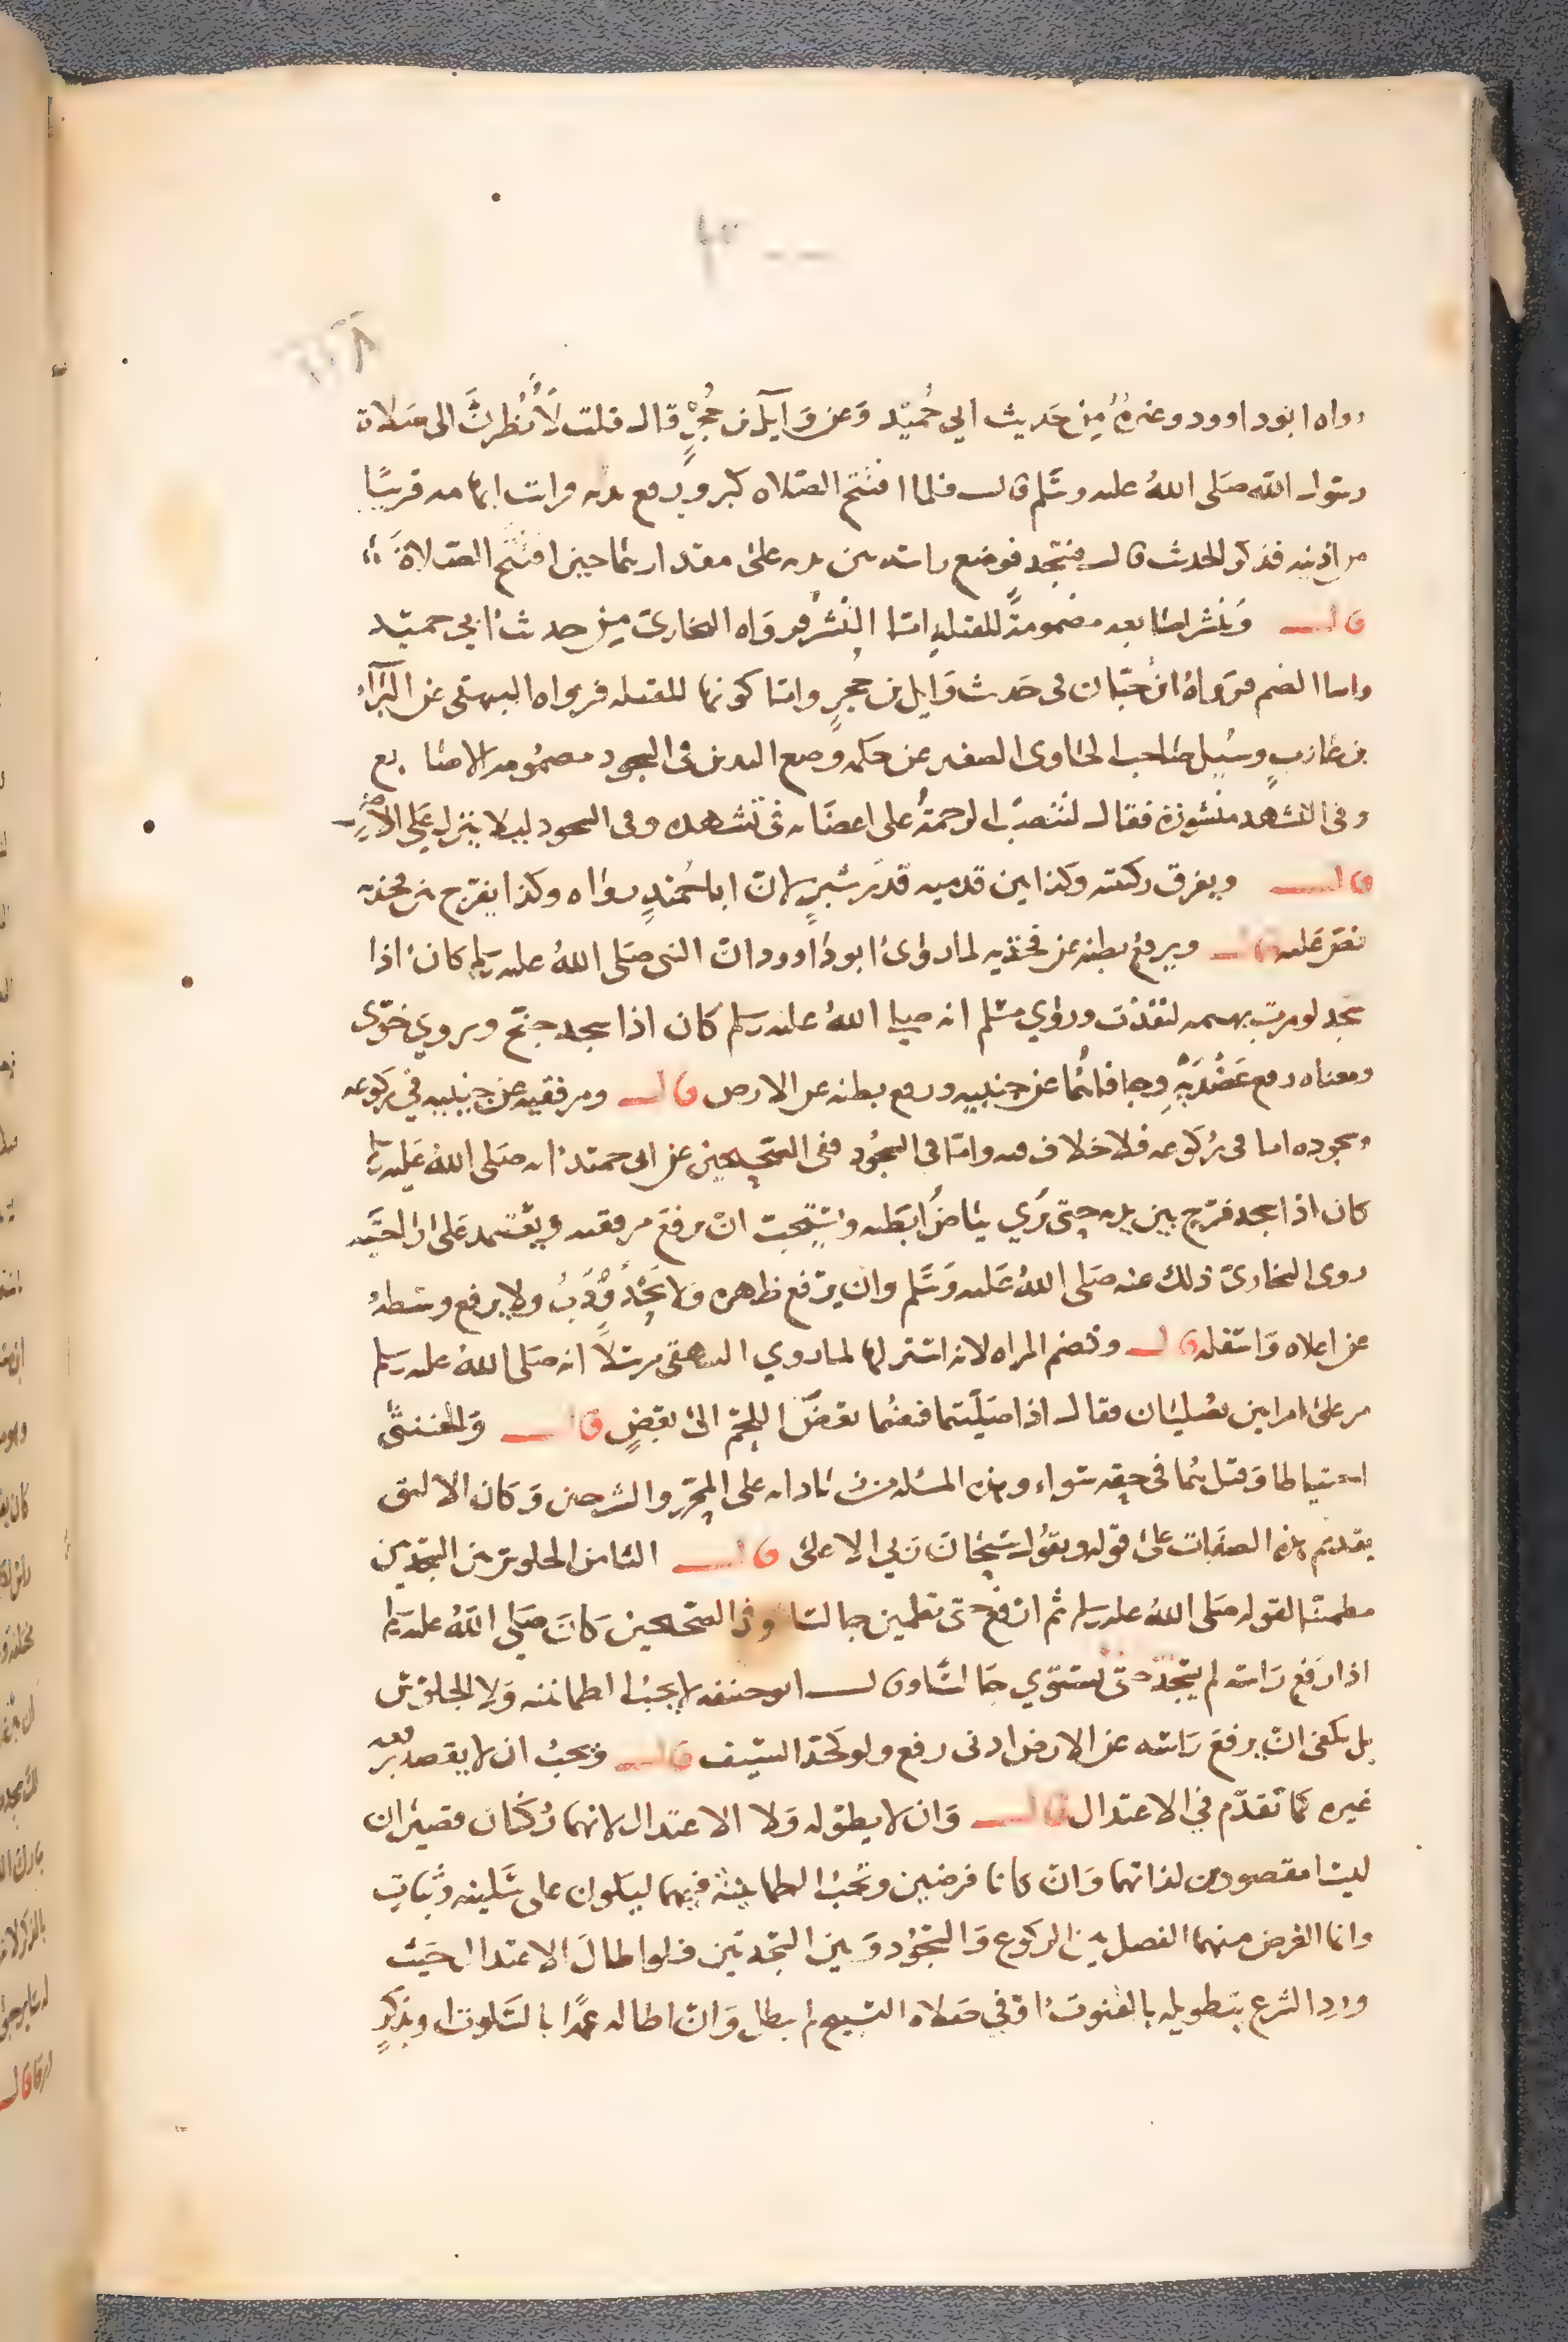 رواه ابو داوود وغيره من حديث ابي حميد وعن وايل بن حجر قال قلت لأنظرن الى صلاة
رسول الله صلى الله عليه وسلم قال فلما افتتح الصلاه كبر ورفع يديه فرايت ابهاميه قريبا
من اذنيه فذكر الحديث قال فسجد فوضع راسه بين يديه على مقدارهما حين افتتح الصلاة
قال وينشر اصابعه مضمومة للقبلة اما النشر فرواه البخاري من حديث ابي حميد
واما الضم فرواه ابن حبان في حديث وايل بن حجر واما كونها للقبله فرواه البيهقي عن البراء
بن عازب وسيل صاحب الحاوي الصغير عن حكمه وضع اليدين في السجود مضمومه الاصابع
وفي التشهد منشورة فقال لتنصب الرحمة على اعضايه في تشهده وفي السجود ليلا ينزل على الأرض
قال ويفرق ركبتيه وكذا بين قدميه قدر شبر لان ابا حميد رواه وكذا يفرج بين فخذيه
نص عليه قال ويرفع بطنه عن فخذيه لما روى ابو داوود ان النبي صلى الله عليه وسلم كان اذا
سجد لو مرت بهيمه لنفذت وروي مسلم انه صلى الله عليه وسلم كان اذا سجد جنح ويروي خوى
ومعناه رفع عضديه وجافاهما عن جنبيه ورفع بطنه عن الارض قال ومرفقيه عن جنبيه في ركوعه
وسجوده اما في ركوعه فلا خلاف فيه واما في السجود ففي الصحيحين عن ابي حميد انه صلى الله عليه وسلم
كان اذا سجد فرج بين يديه حتى يري بياض ابطيه ويستحب ان يرفع مرفقيه ويعتمد على راحتيه
روى البخاري ذلك عنه صلى الله عليه وسلم وان يرفع ظهره ولا يحدودب ولا يرفع وسطه
عن اعلاه واسفله قال وتضم المراه لانه استر لها لما روي البيهقي مرسلا انه صلى الله عليه وسلم
مر على امراتين تصليان فقال اذا صليتما فضما بعض اللحم الى بعض قال والخنثى
احتياطا وقيل هما في حقه سواء وهذه المسئله من زياداته على المحرر والشرحين وكان الاليق
تقديم هذه الصفات على قوله ويقول سبحان ربي الاعلى قال الثامن الجلوس بين السجدتين
مطمئنا لقوله صلى الله عليه وسلم ثم ارفع حتى تطمئن جالسا وفي الصحيحين كان صلى الله عليه وسلم
اذا رفع راسه لم يسجد حتى يستوي جالسا وقال ابو حنيفه لا يجب الطمانينه ولا الجلوس
بل يكفي ان يرفع راسه عن الارض ادنى رفع ولو كحد السيف قال ويجب ان لا يقصد برفعه
غيره كما تقدم في الاعتدال قال وان لا يطوله ولا الاعتدال لانهما ركنان قصيران
ليسا مقصودين لذاتهما وان كانا فرضين وتجب الطمانينة فيهما ليكون على سكينه وثبات
وانما الغرض منهما الفصل بين الركوع والسجود وبين السجدتين فلو اطال الاعتدال حيث
ورد الشرع بتطويله بالقنوت او في صلاه التسبيح لم يبطل وان اطاله عمدا بالسكوت او بذكر